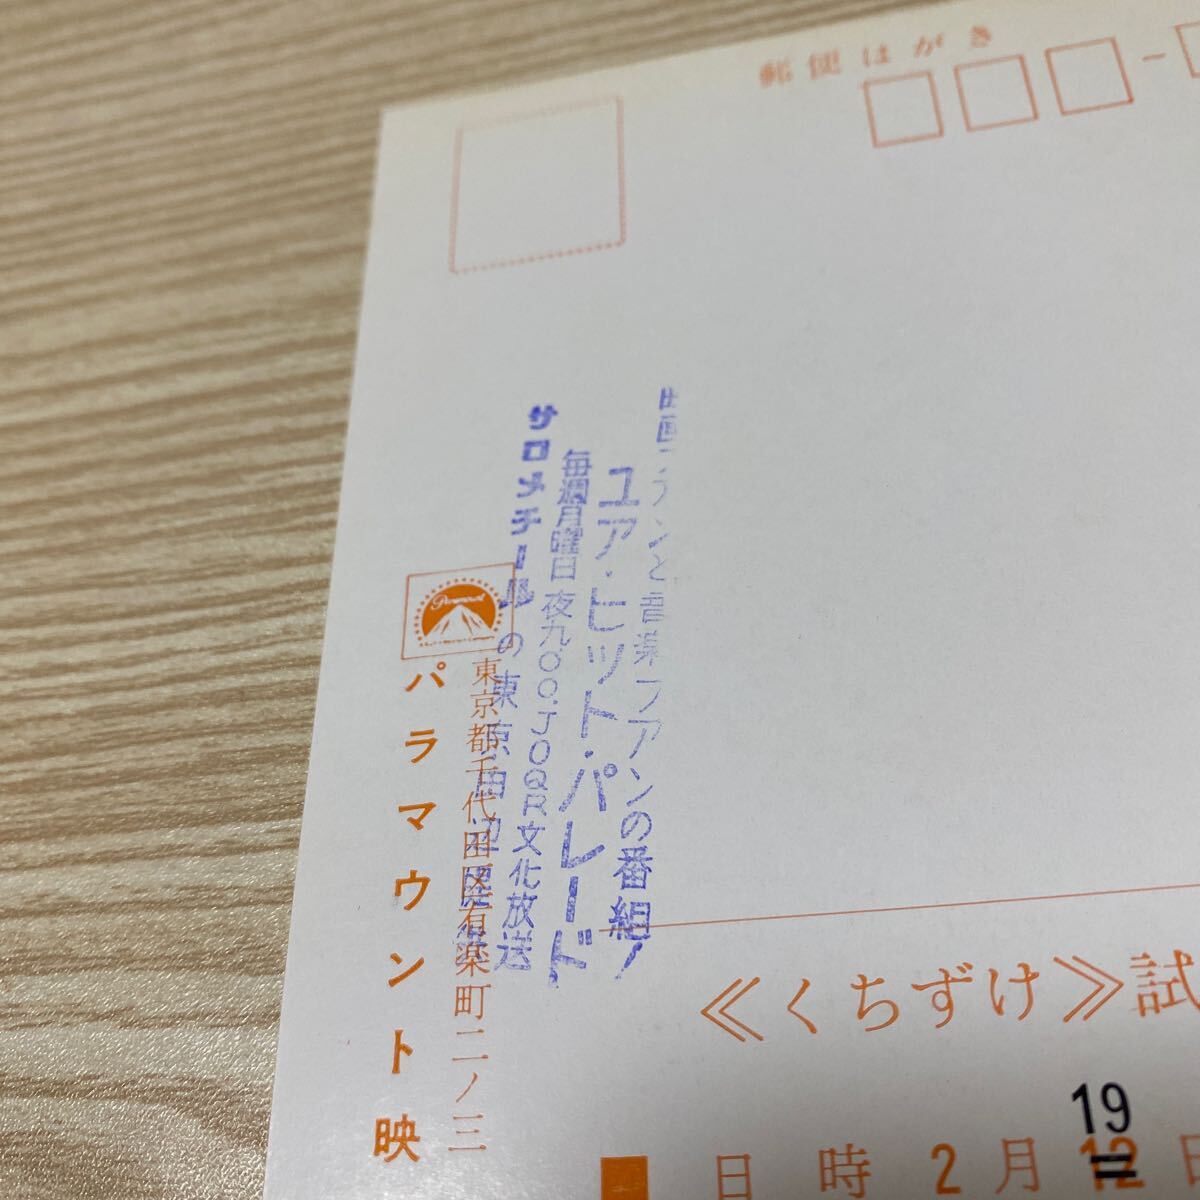 郵便はがき
映画ファンと音楽ファンの番組!
ユア・ヒット・パレード
毎週月曜日夜九.〇〇.JOQR文化放送
サロメチールの東京田辺製薬
Paramount
東京都千代田区有楽町二ノ三
パラマウント映
≪くちずけ≫試
19
■ 日時 2月12日